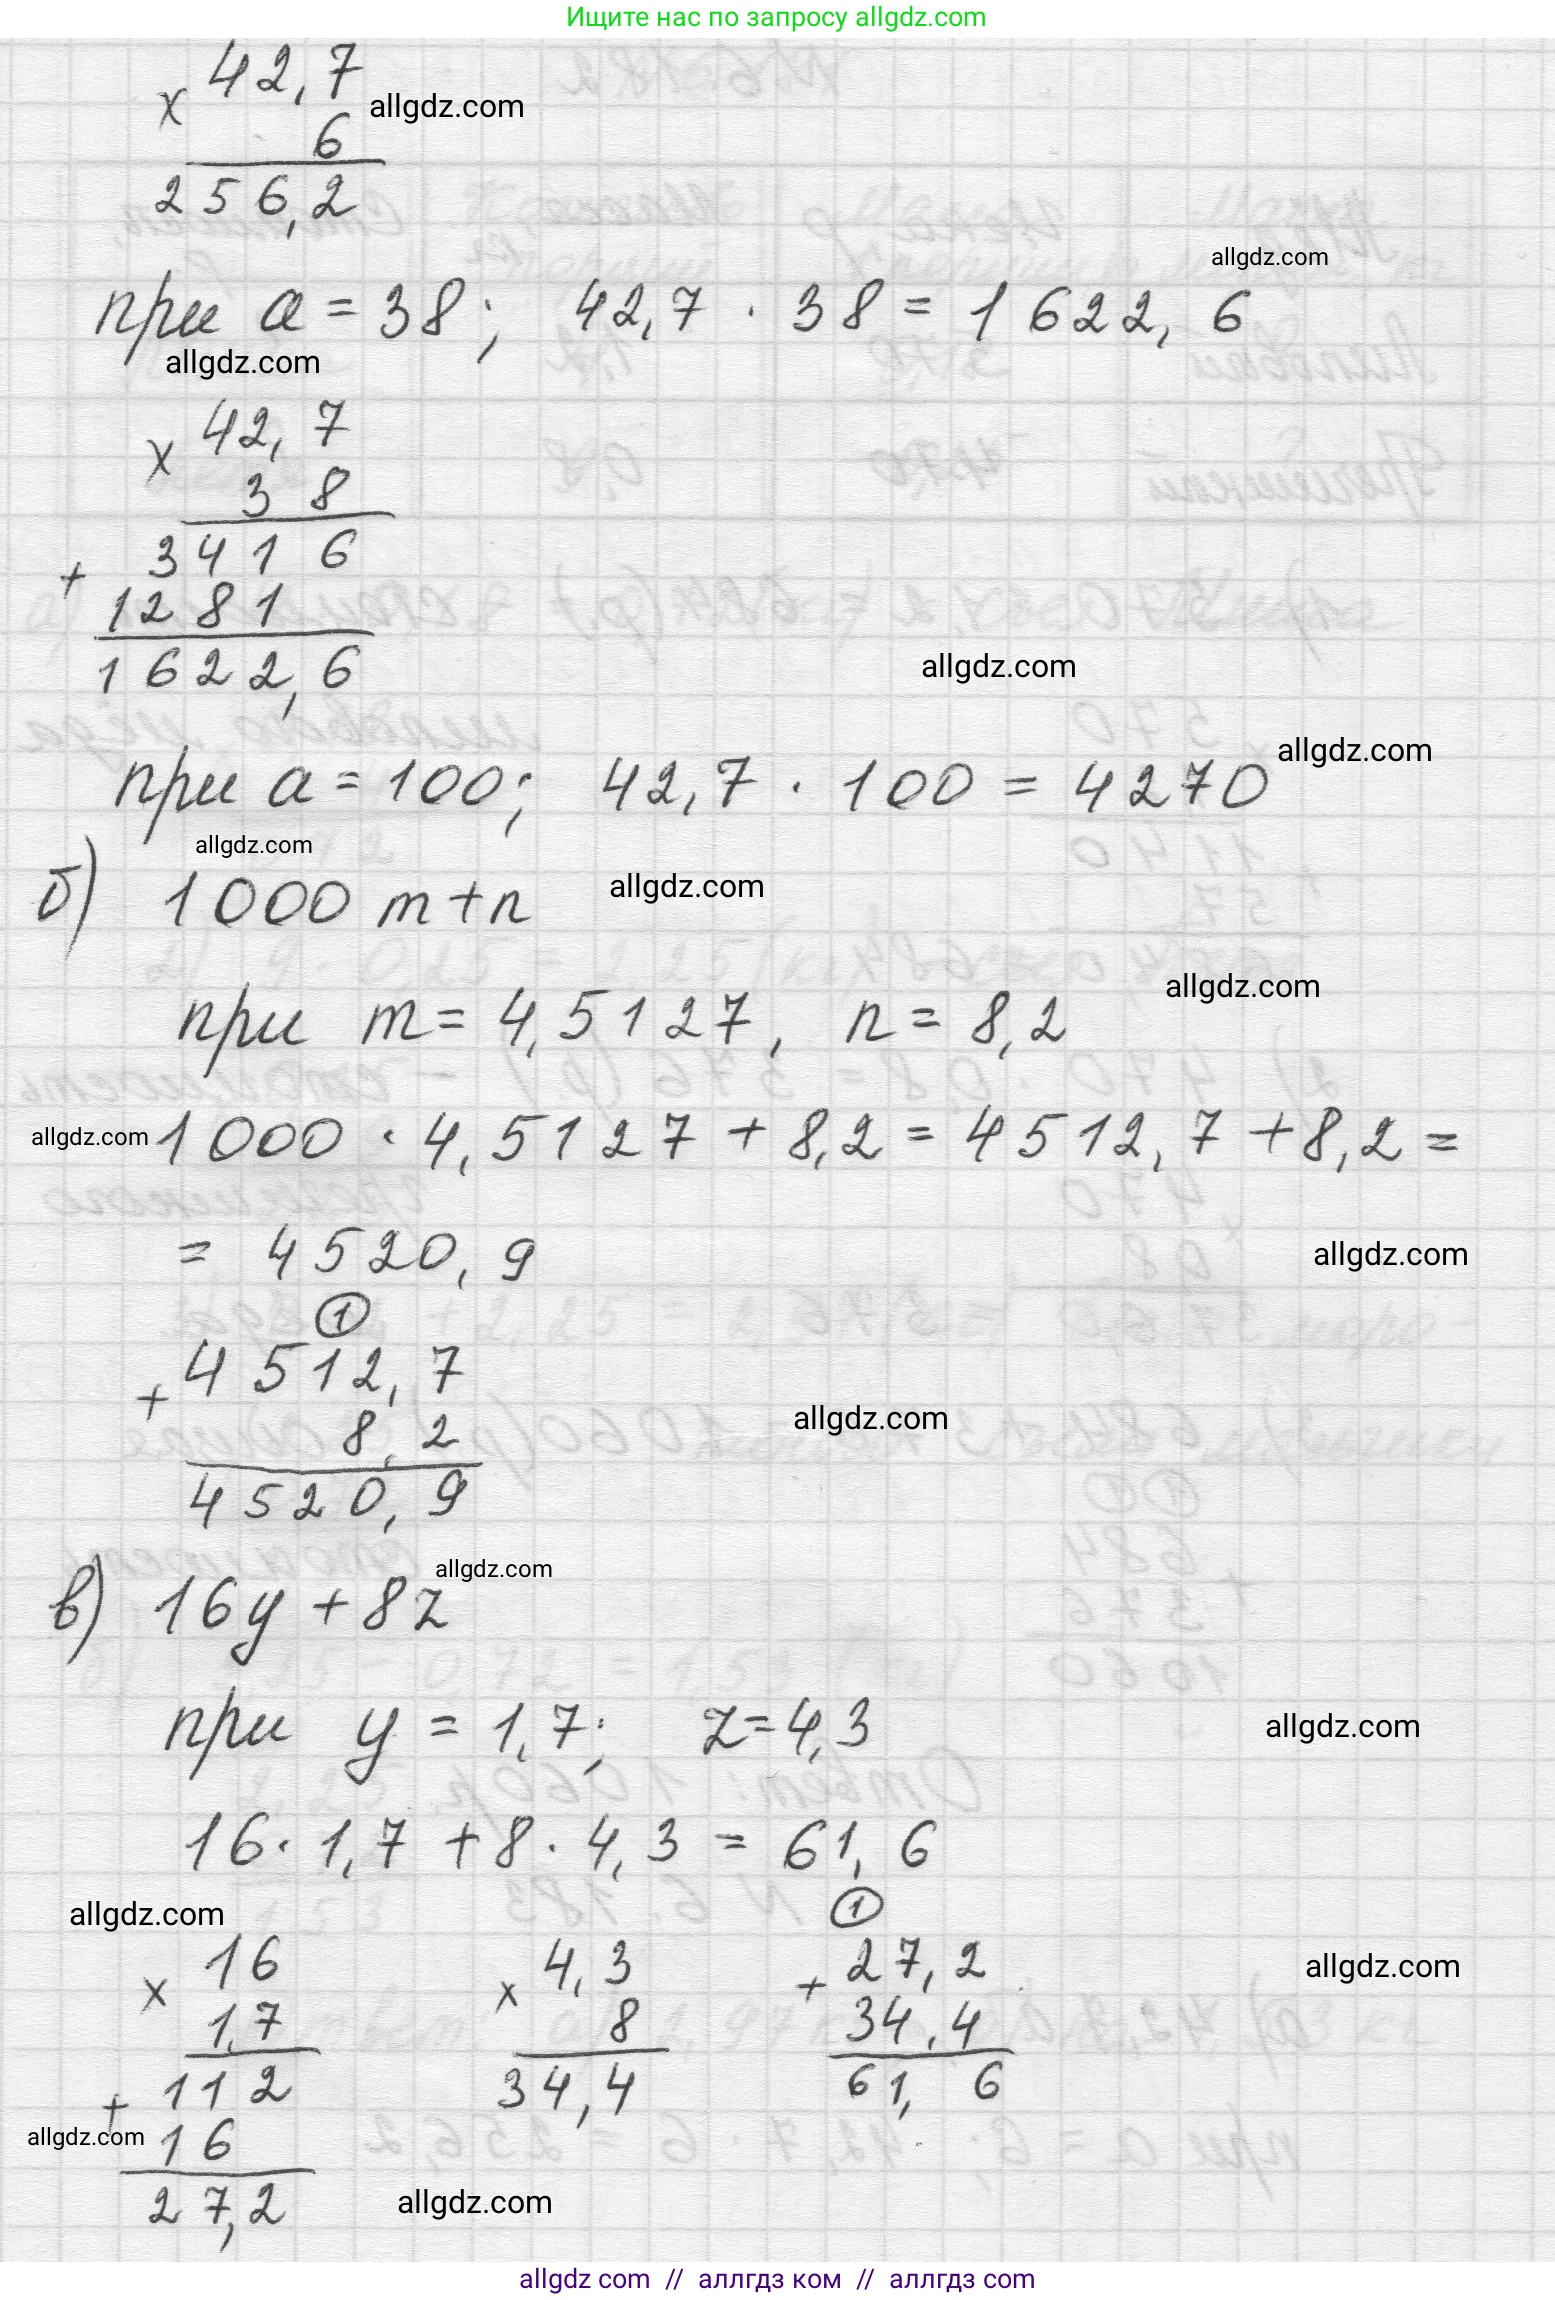 Ищите нас по запросу allgdz.com
× 42,7 allgdz.com
6
256,2
allgdz.com
при a = 38; 42,7 · 38 = 1622,6
allgdz.com
× 42,7
38
+ 3416
1281
1622,6
allgdz.com
allgdz.com
при a = 100; 42,7 · 100 = 4270
allgdz.com
б) 1000 m+n allgdz.com
allgdz.com
при m = 4,5127, n = 8,2
allgdz.com 1000 · 4,5127 + 8,2 = 4512,7 + 8,2 =
= 4520,9 allgdz.com
1
+ 4512,7
8,2 allgdz.com
4520,9
allgdz.com
в) 16y + 8z
при y = 1,7; z = 4,3 allgdz.com
16 · 1,7 + 8 · 4,3 = 61,6
allgdz.com 1
× 16 × 4,3 + 27,2 allgdz.com
1,7 8 34,4
+ 112 34,4 61,6
allgdz.com 16
27,2 allgdz.com
allgdz com // аллгдз ком // аллгдз com